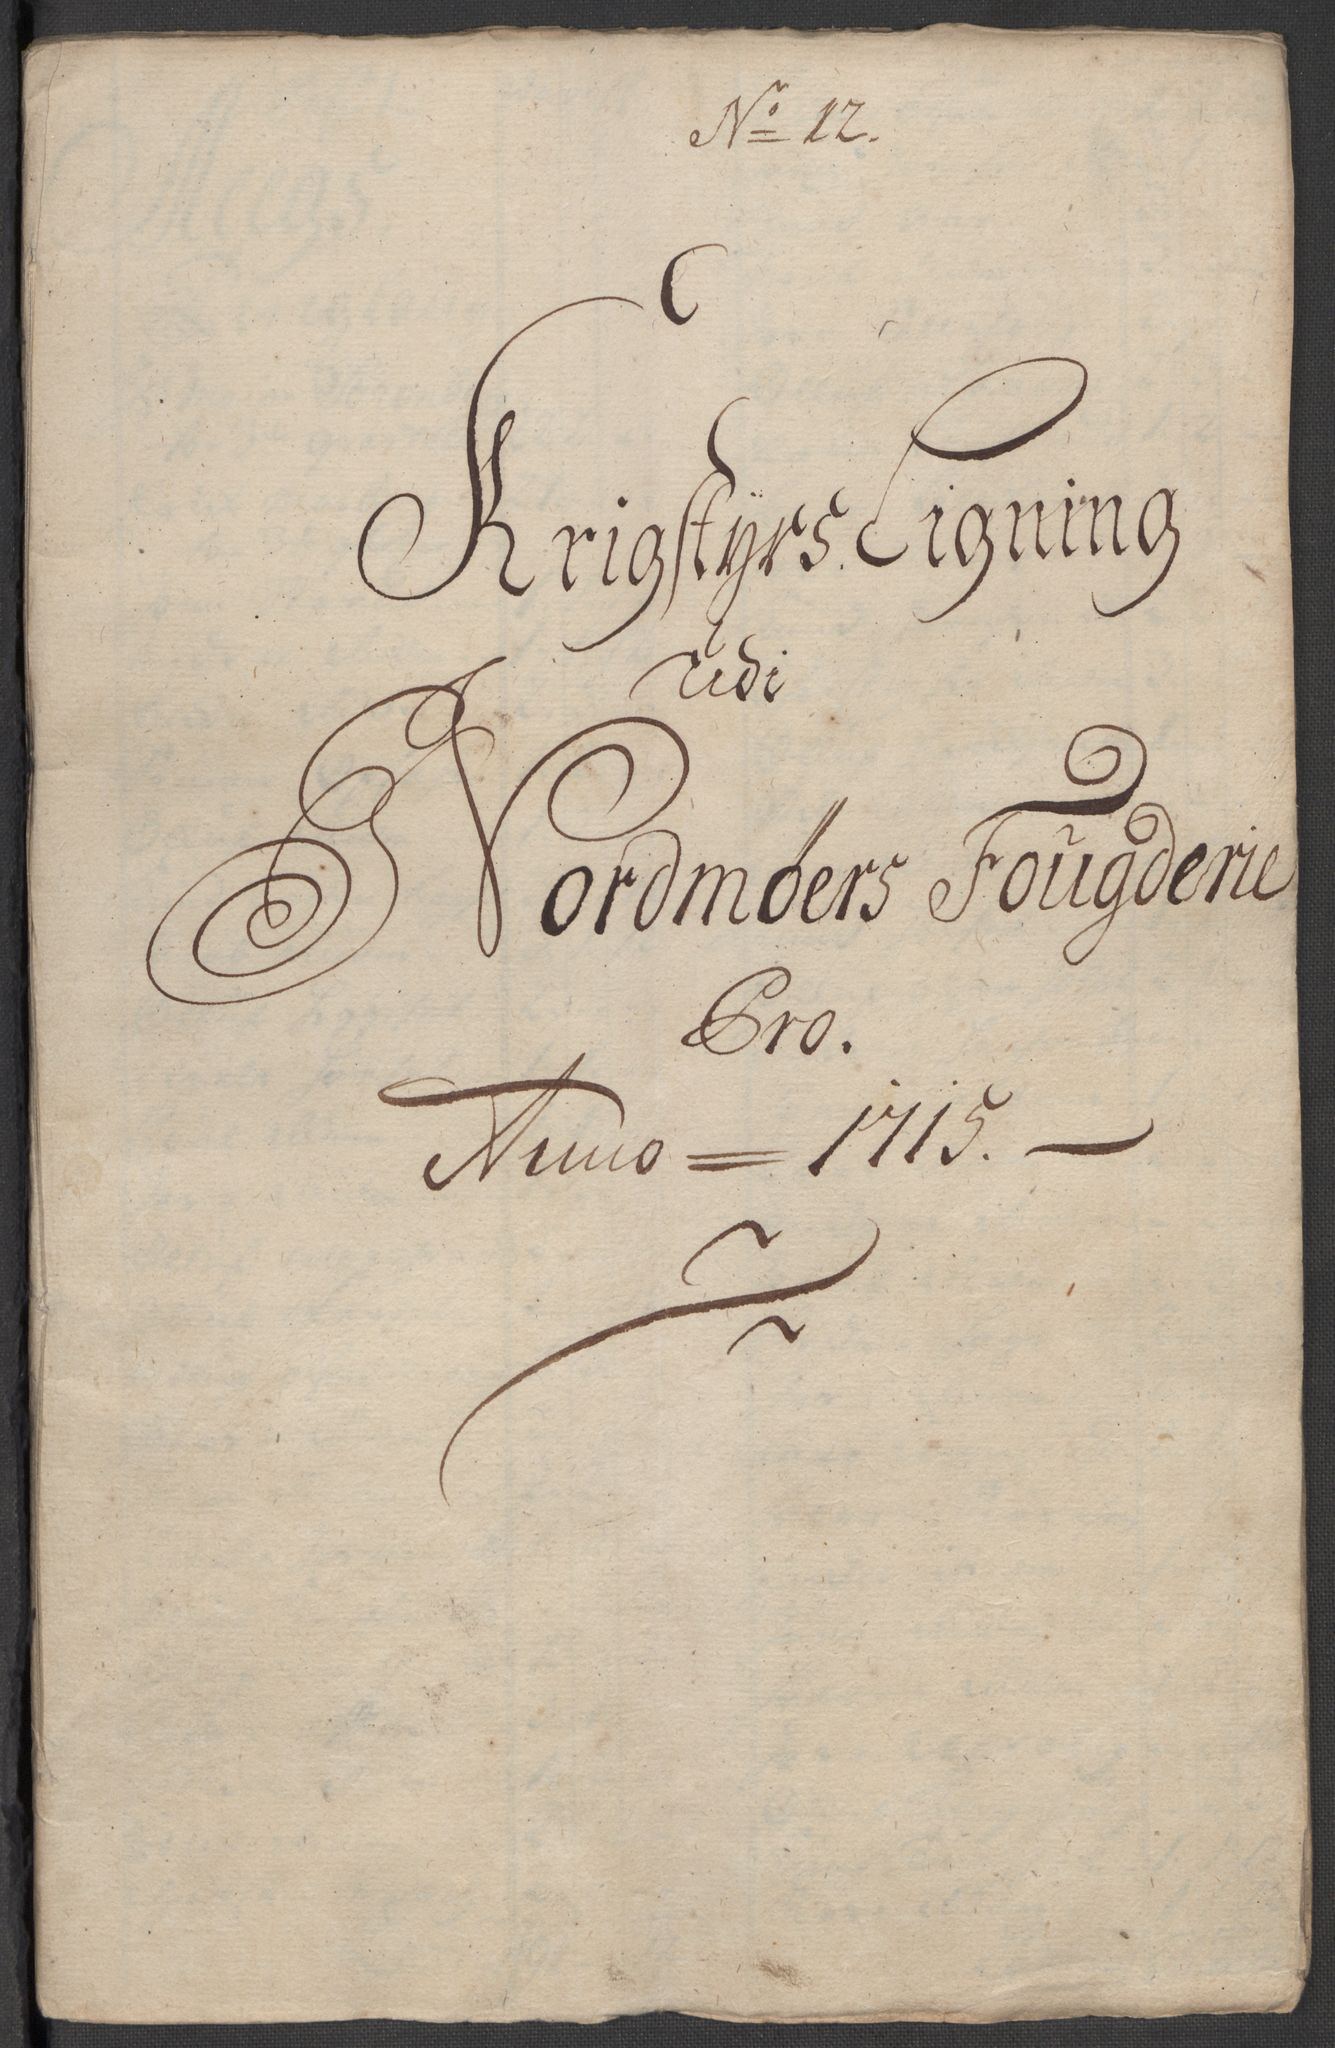 No 12.
Krigstyrs Ligning
udi
Nordmøers Fougderie
Pro.
Anno = 1715. —